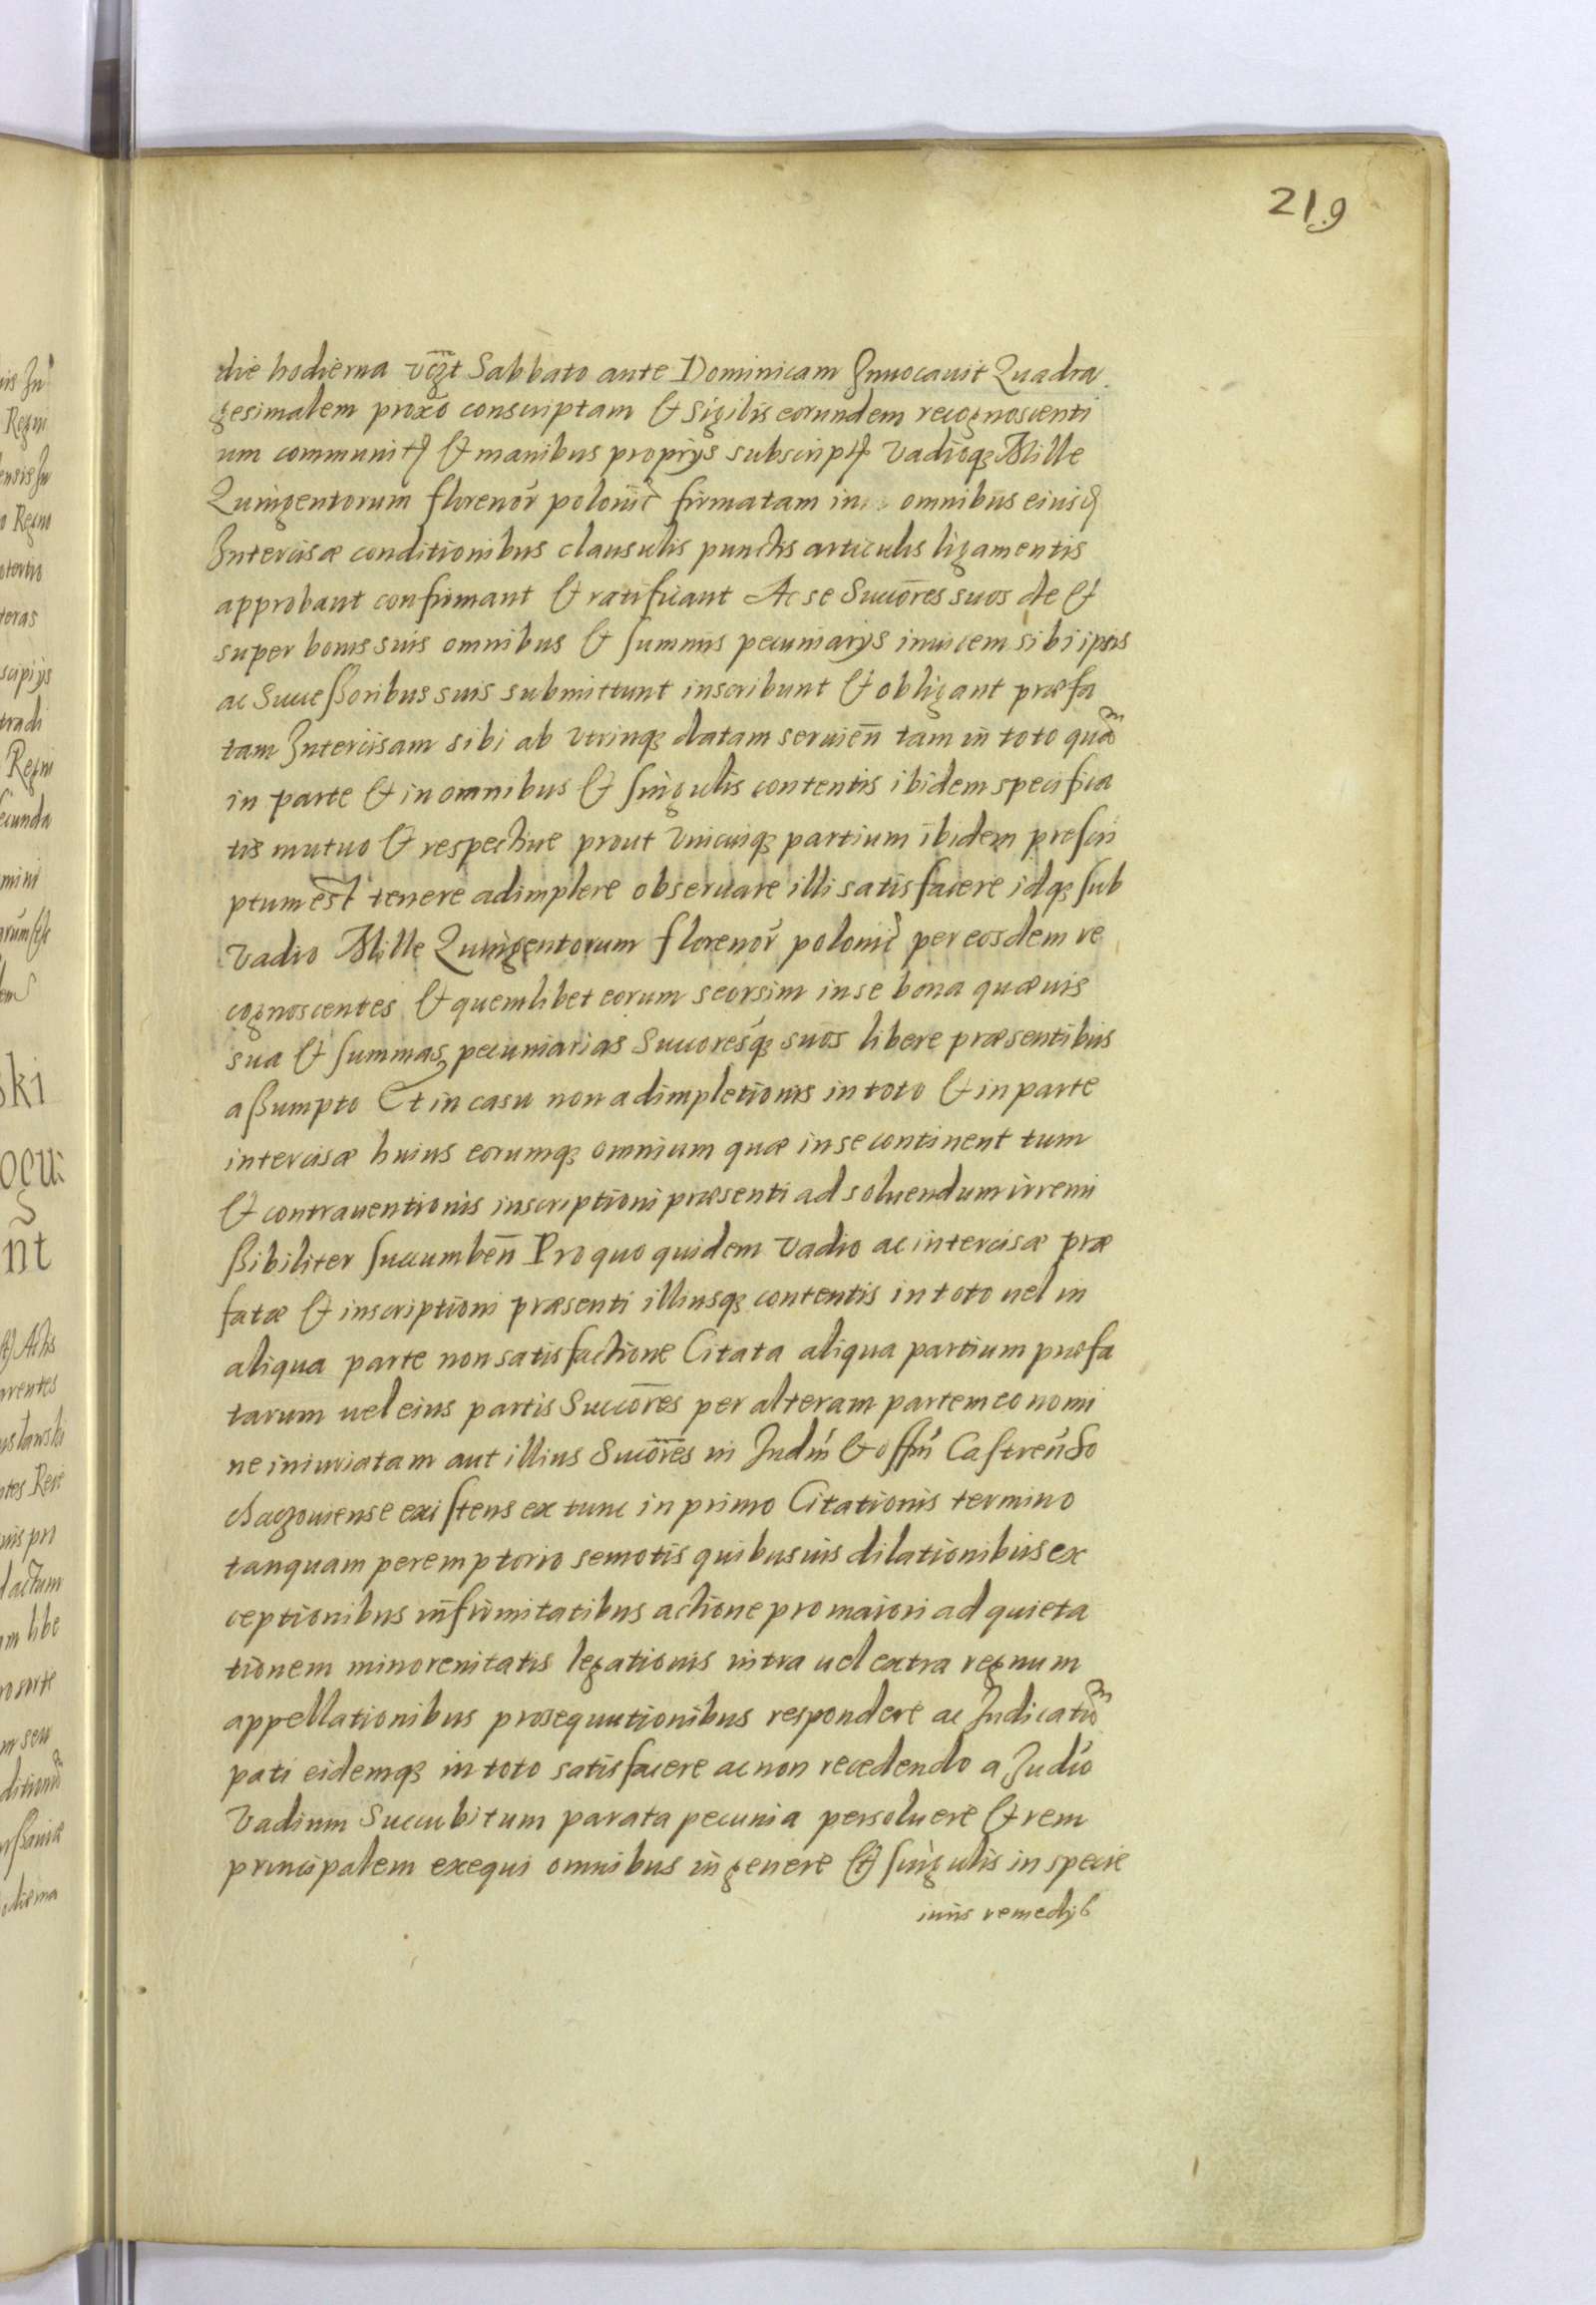 219
die hodierna vczt Sabbato ante Dominicam Inuocauit Quadra
gesimalem proxo conscriptam & sigilis eorundem recognoscenti
um communit & manibus proprijs subscript vadioq; Mille
Quingentorum florenor polonic firmatam in omnibus eiusd
Intercisæ conditionibus clausulis punctis articulis ligamentis
approbant confirmant & ratificant Ac se Succores suos de &
super bonis suis omnibus & summis pecuniarijs inuicem sibi ipsis
ac Successoribus suis submittunt inscribunt & obligant præfa
tam Intercisam sibi ab vtrinq; datam seruien tam in toto quam
in parte & in omnibus & singulis contentis ibidem specifica
tis mutuo & respectiue prout vnicuiq; partium ibidem prescri
ptum est tenere adimplere obseruare illi satisfacere idq; sub
vadio Mille Quingentorum florenor polonic per eosdem re
cognoscentes & quemlibet eorum seorsim in se bona quæuis
sua & summas pecuniarias Succoresq; suos libere præsentibus
assumpto Et in casu non adimpletionis in toto & in parte
intercisæ huius eorumq; omnium quæ in se continent tum
& contrauentionis inscriptioni præsenti ad soluendum irremi
ssibiliter succumben Pro quo quidem vadio ac intercisæ præ
fatæ & inscriptioni præsenti illiusq; contentis in toto uel in
aliqua parte non satisfactione Citata aliqua partium præfa
tarum uel eius partis Succores per alteram partem eo nomi
ne iniuriatam aut illius Succores in Judm & offm Castren So
chaczouiense existens ex tunc in primo Citationis termino
tanquam peremptorio semotis quibusuis dilationibus ex
ceptionibus infirmitatibus actione pro maiori ad quieta
tionem minorenitatis legationis intra uel extra regnum
appellationibus prosequutionibus respondere ac Judicatum
pati eidemq; in toto satisfacere ac non recedendo a Judio
Vadium Succubitum parata pecunia persoluere & rem
principalem exequi omnibus in genere & singulis in specie
iuris remedijs